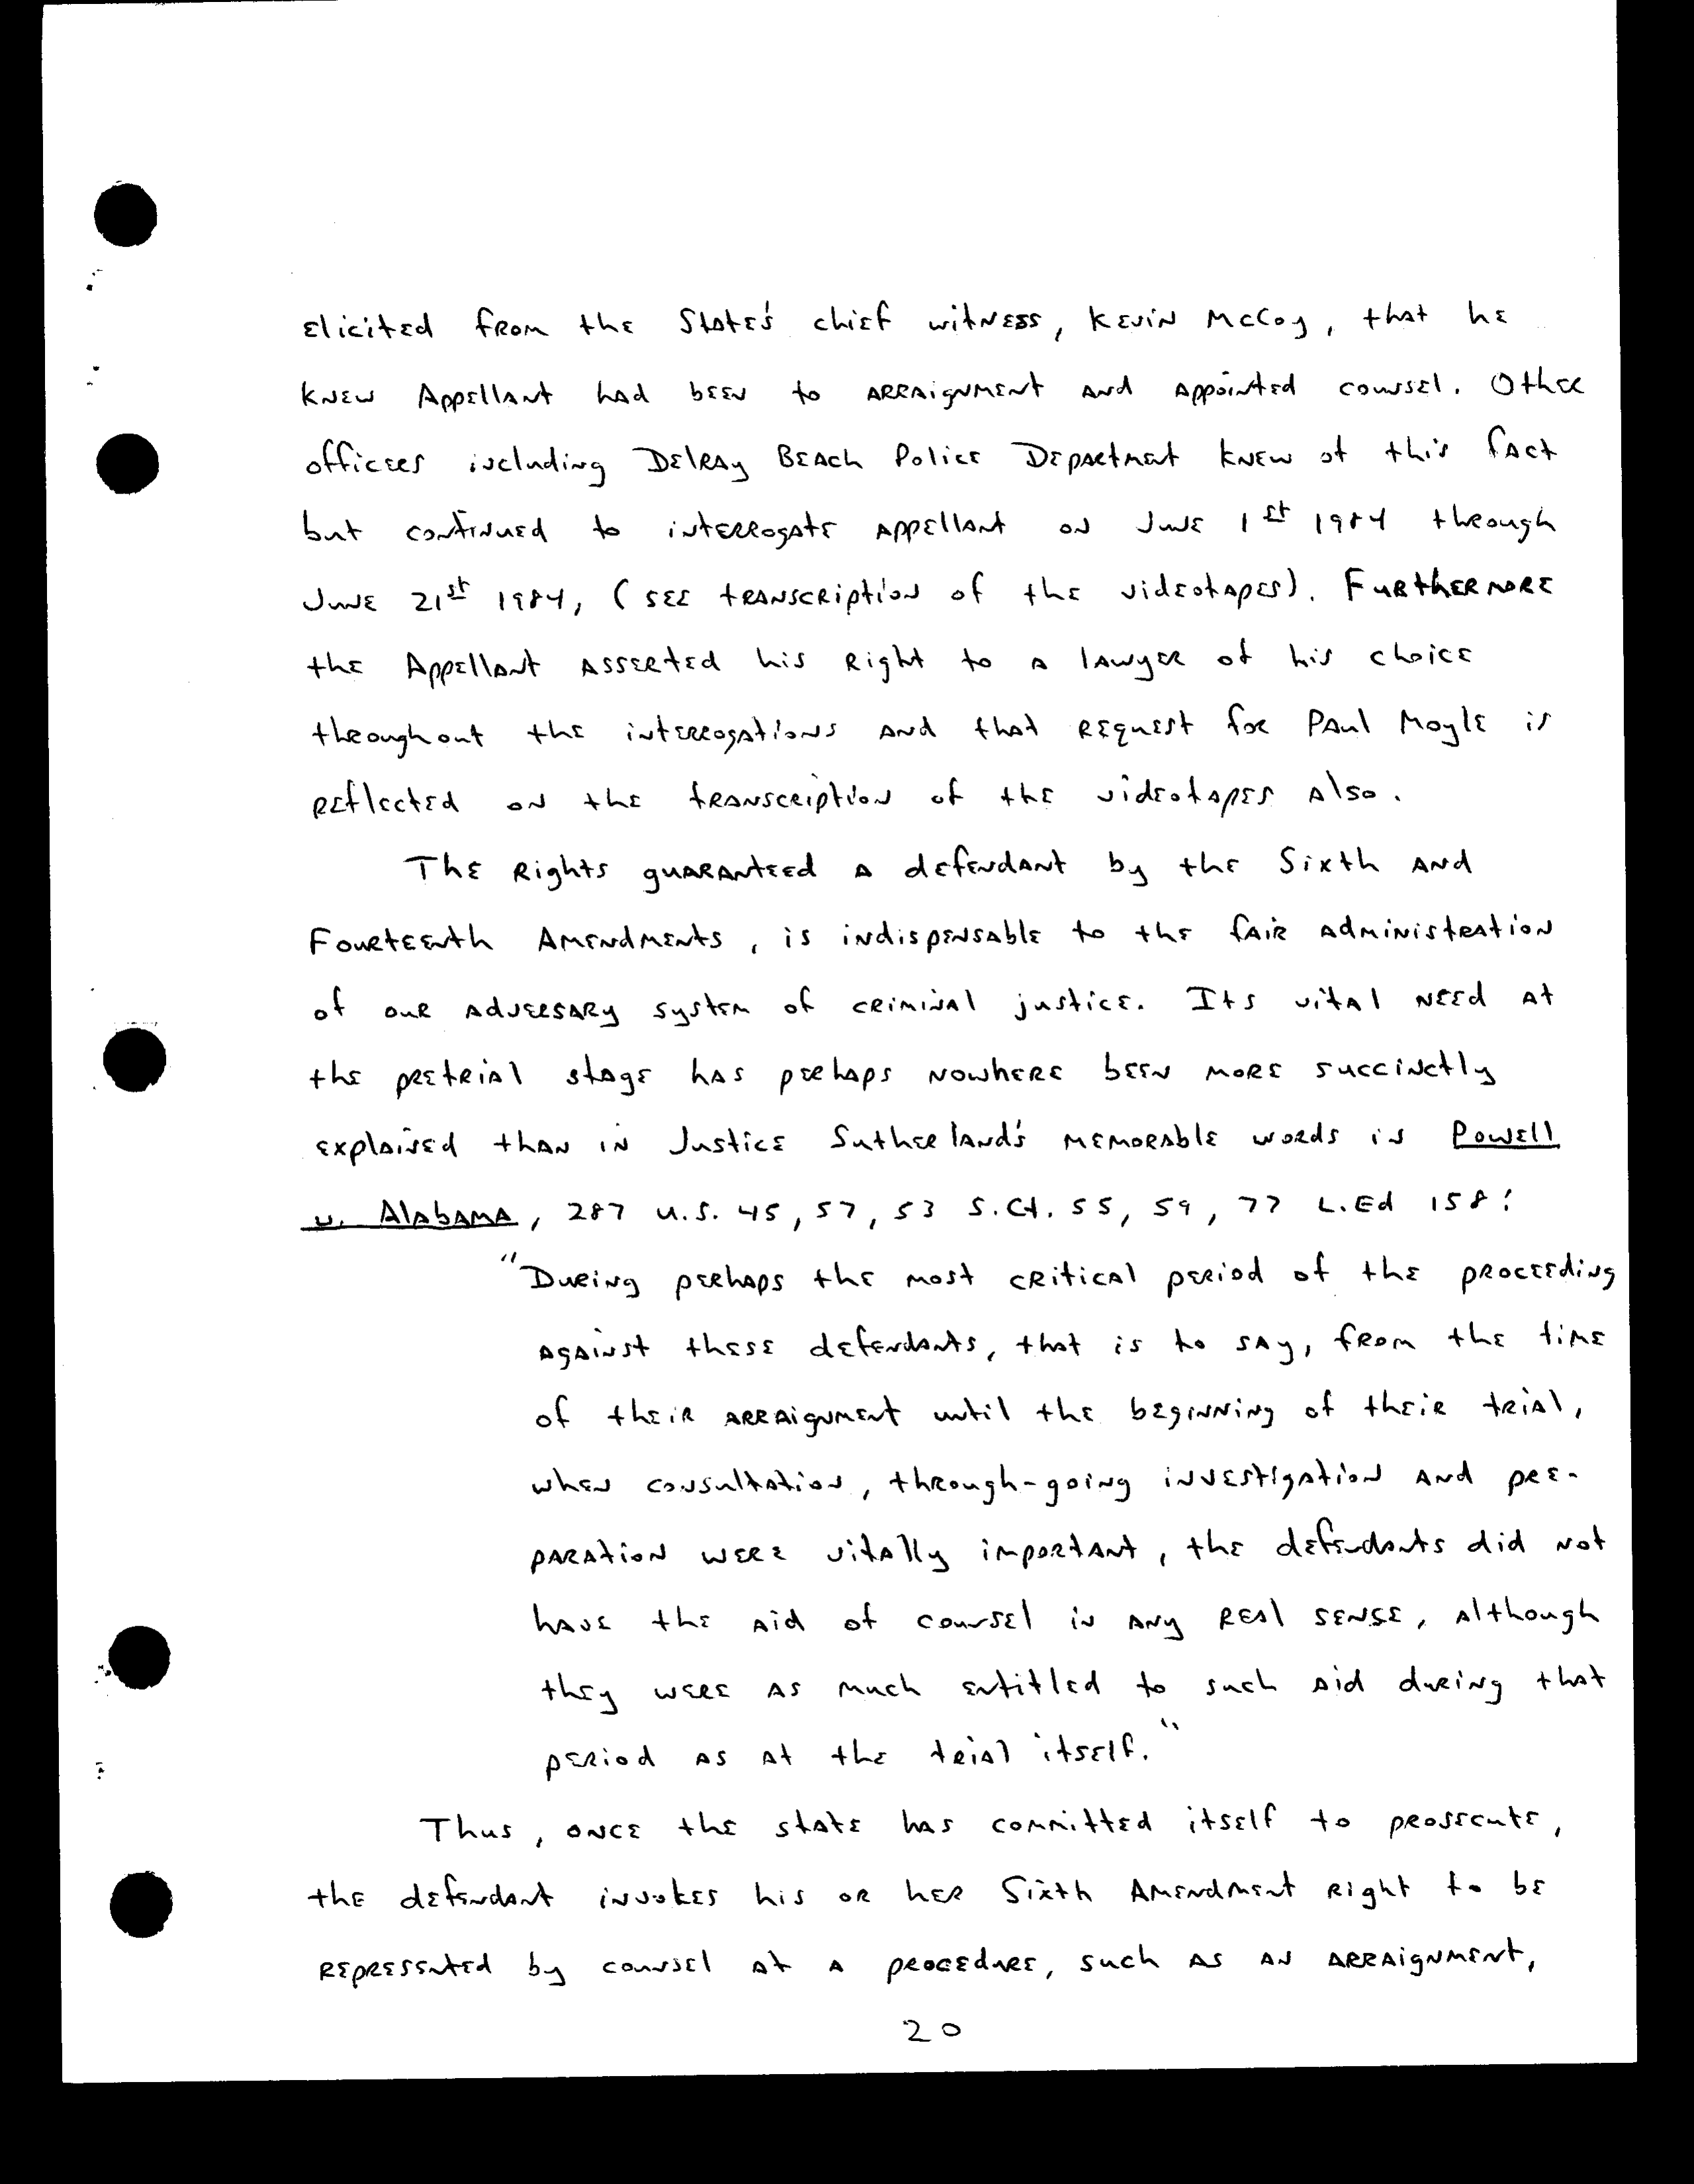 elicited from the State's chief witness, Kevin McCoy, that he
knew Appellant had been to arraignment and appointed counsel. Other
officers including Delray Beach Police Department knew of this fact
but continued to interrogate appellant on June 1st 1984 through
June 21st 1984, (see transcription of the videotapes). Furthermore
the Appellant asserted his right to a lawyer of his choice
throughout the interrogations and that request for Paul Moyle is
reflected on the transcription of the videotapes also.
The rights guaranteed a defendant by the Sixth and
Fourteenth Amendments, is indispensable to the fair administration
of our adversary system of criminal justice. Its vital need at
the pretrial stage has perhaps nowhere been more succinctly
explained than in Justice Sutherland's memorable words is Powell
v. Alabama, 287 U.S. 45, 57, 53 S.Ct. 55, 59, 77 L.Ed 158:
"During perhaps the most critical period of the proceeding
against these defendants, that is to say, from the time
of their arraignment until the beginning of their trial,
when consultation, through-going investigation and pre-
paration were vitally important, the defendants did not
have the aid of counsel in any real sense, although
they were as much entitled to such aid during that
period as at the trial itself."
Thus, once the state has committed itself to prosecute,
the defendant invokes his or her Sixth Amendment right to be
represented by counsel at a procedure, such as an arraignment,
20